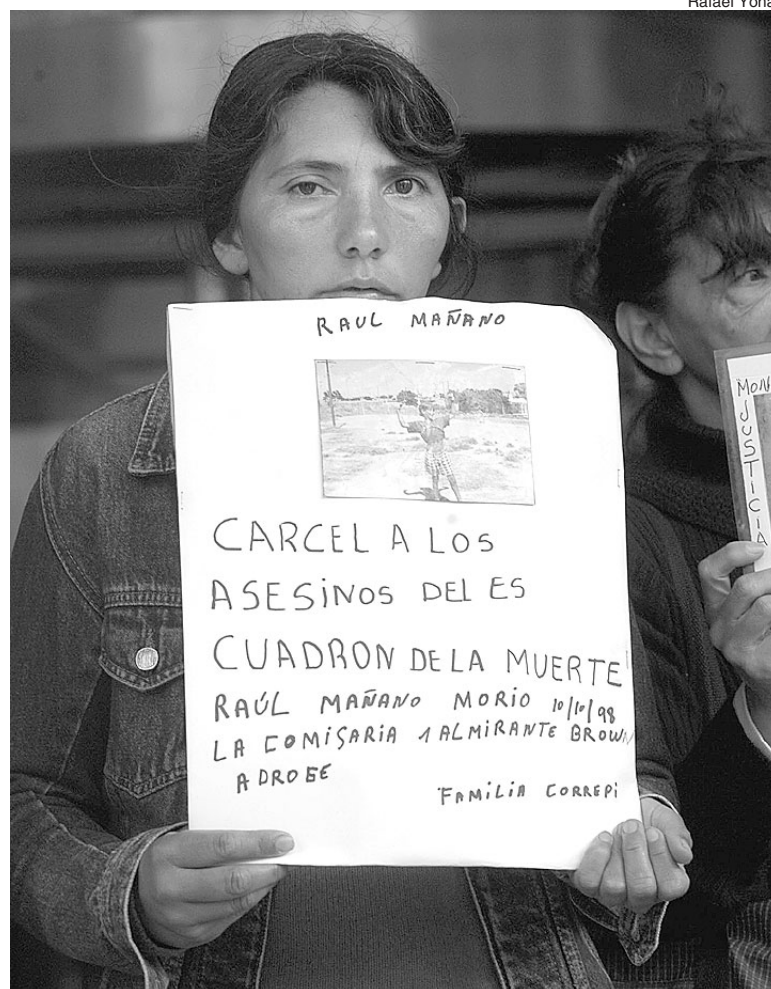 Rafael
RAUL MAÑANO
CARCEL A LOS
ASESiNOS DEL ES
CUADRON DE LA MUERTE
RAÚL MAÑANO MORIO 10/10/98
LA COMISARIA 1 ALMIRANTE BROWN
ADROGE
FAMILIA CORREPi
JUSTICIA